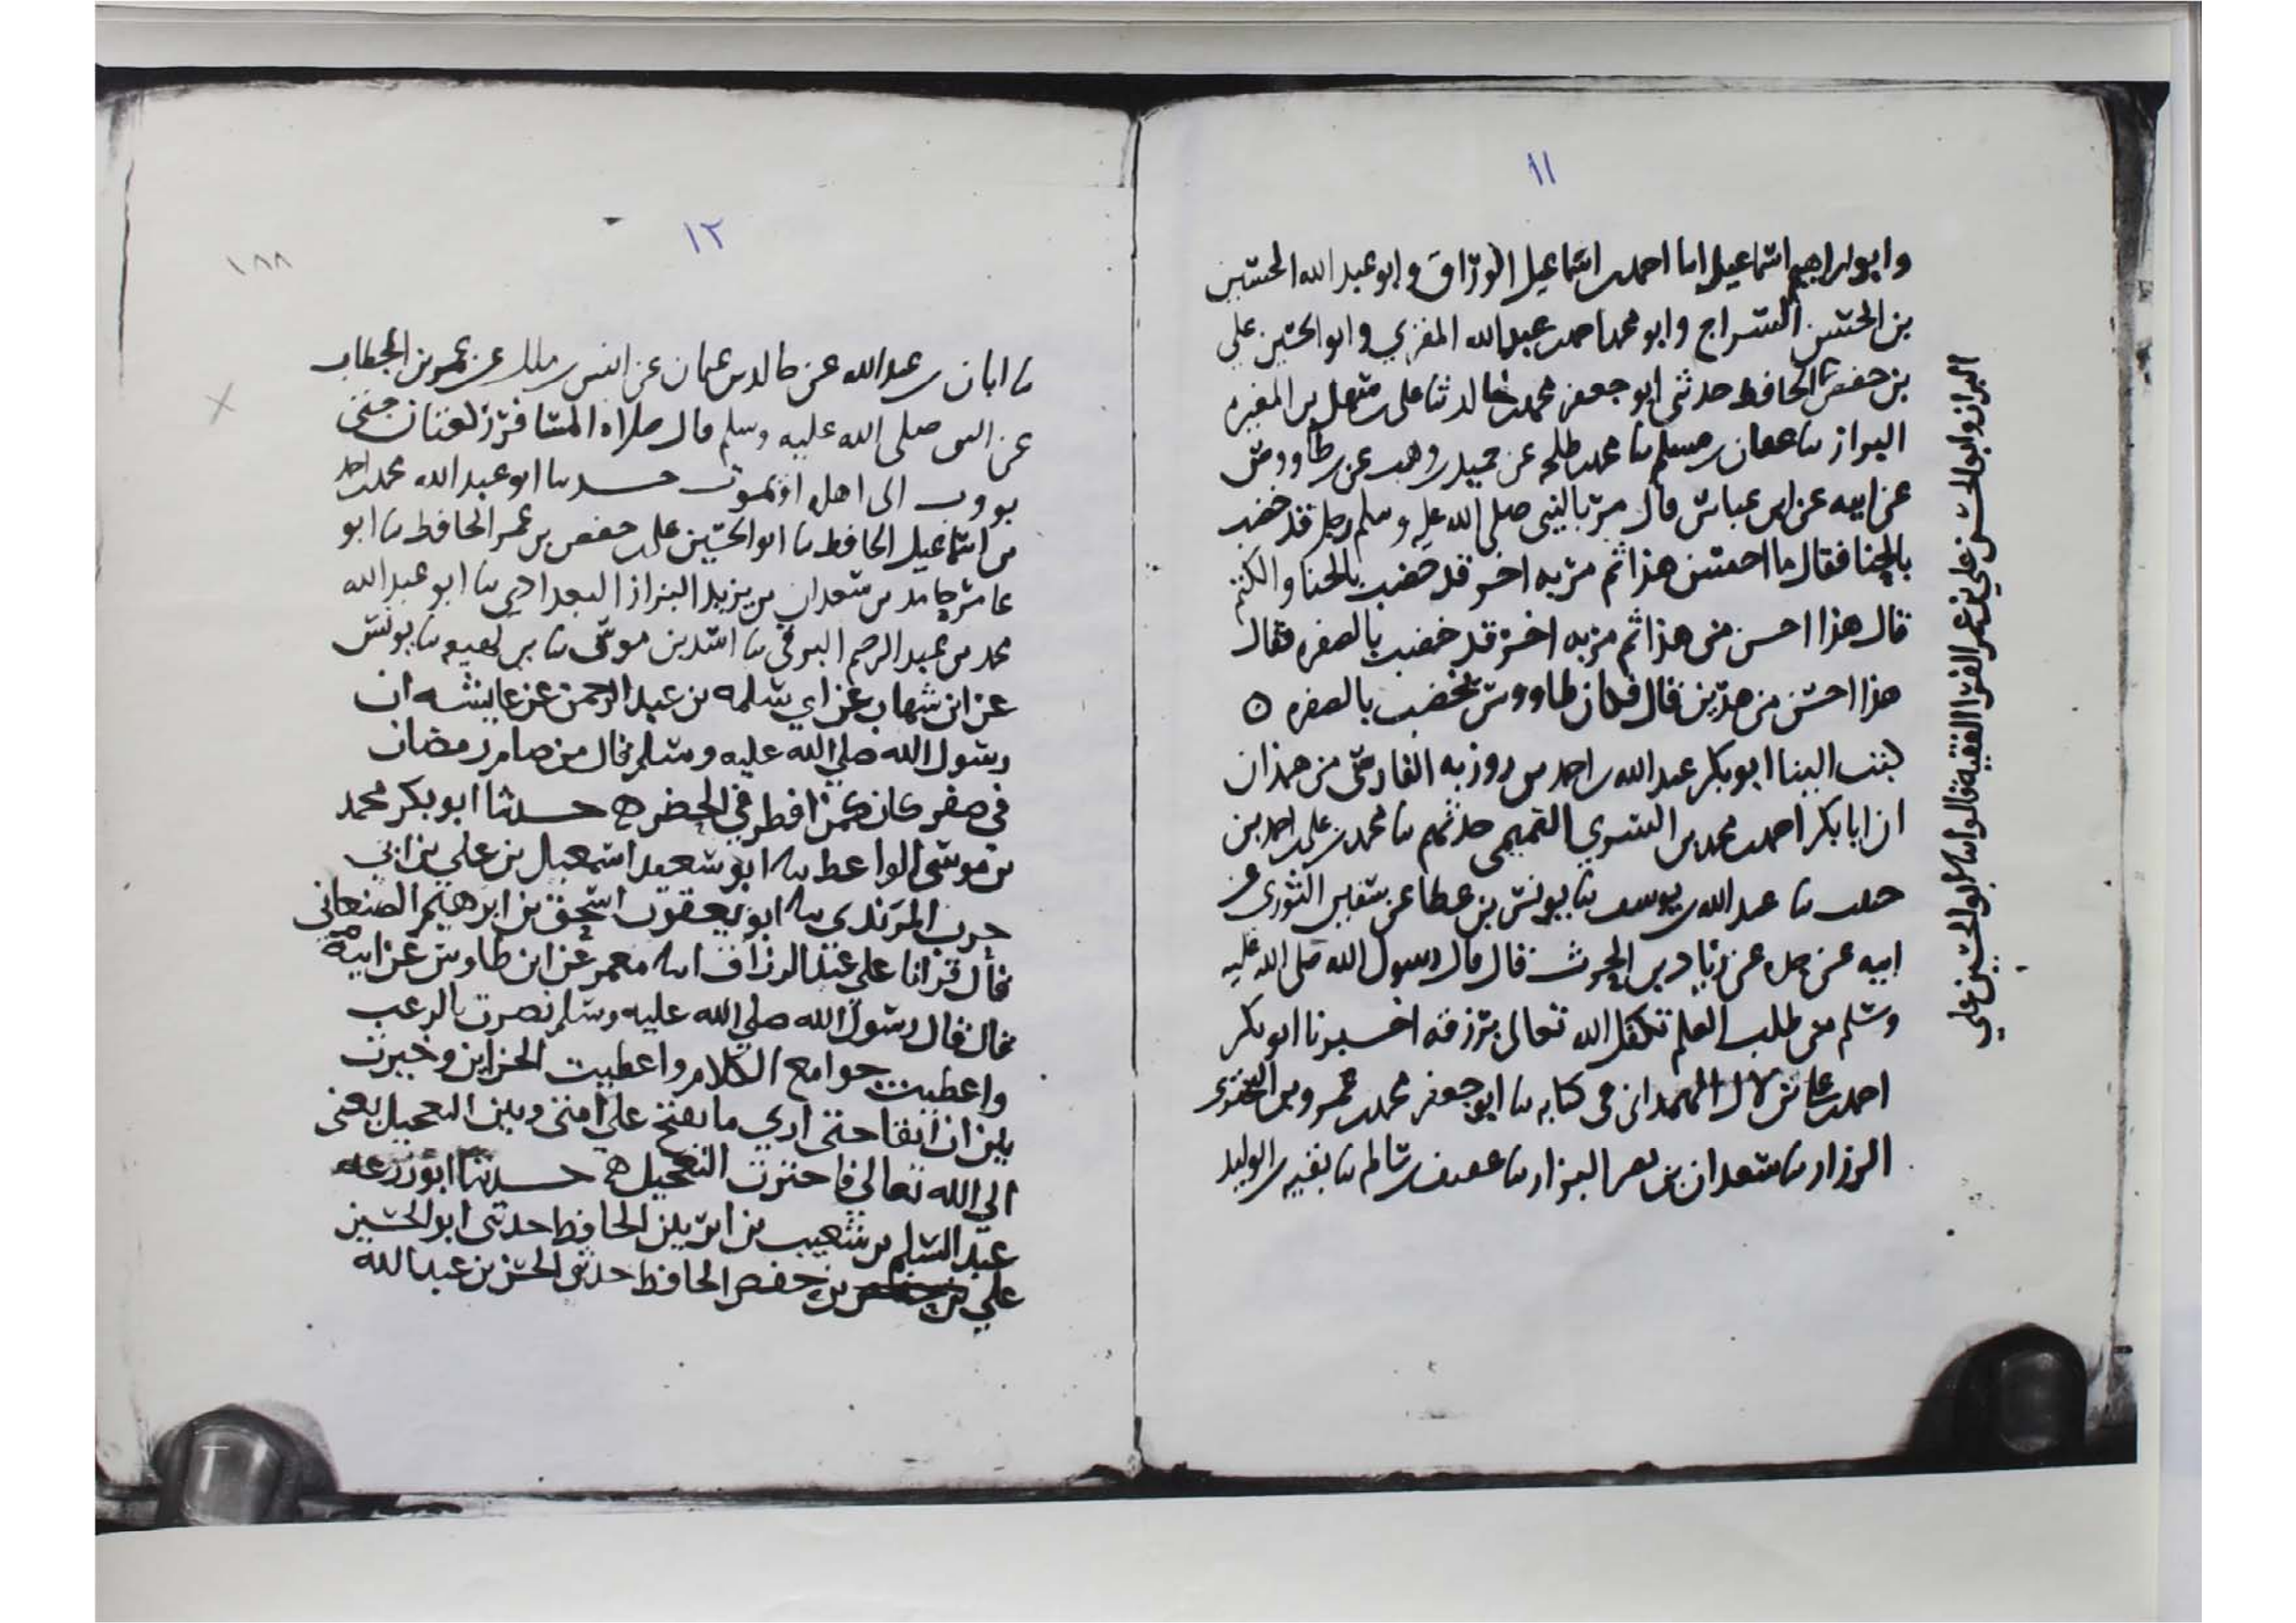 ١١
وابو ابراهيم اسماعيل احمد بن اسماعيل الوزاق وابو عبد الله الحسين
بن الحسن السراج وابو محمد احمد بن عبد الله المغزي وابو الحسين علي
بن حفص الحافظ حدثني ابو جعفر محمد بن خالد ثنا علي بن سهل بن المغيره
البزاز ثنا عفان بن مسلم ثنا محمد بن طلحه عن حميد بن وهب عن بن طاووس
عن ابيه عن ابن عباس قال مر بالنبي صلى الله عليه وسلم رجل قد خضب
بالحنا فقال ما احسن هذا ثم مر به اخر قد خضب بالحنا والكتم
قال هذا احسن من هذا ثم مر به اخر قد خضب بالصفره فقال
هذا احسن من هذين قال فكان طاووس يخضب بالصفره ه
كتب الينا ابو بكر عبد الله بن احمد بن روزبه الفارسي من همذان
ان ابا بكر احمد بن محمد بن السري التميمي حدثهم ثنا محمد بن علي احمد بن
ثنا عبد الله بن يوسف ثنا يونس بن عطا عن سفين الثوري عن
ابيه عن جده عن زياد بن الحرث قال قال رسول الله صلى الله عليه
وسلم من طلب العلم تكفل الله تعالى برزقه اخبرنا ابو بكر
احمد بن علي بن لال الهمداني في كتابه ثنا ابو جعفر محمد بن عمرو بن البختري
الرزاز ثنا سعدان بن نصر البزار ثنا بن سالم ثنا بقيه بن الوليد
البزاز وابو الحسن علي بن عمر الفقيه قالوا ثنا ابو الحسين علي
١٢
١٨٨
ثنا ابان بن عبد الله عن خالد بن عثمان عن انس بن ملك عن عمر بن الخطاب
عن النبي صلى الله عليه وسلم قال صلاه المسافر ركعتان حتى
يووب الى اهله او يموت حدثنا ابو عبد الله محمد بن احمد
بن اسماعيل الحافظ ثنا ابو الحسين علي بن حفص بن عمر الحافظ ثنا ابو
عامر حامد بن سعدان بن يزيد البزاز البغدادي ثنا ابو عبد الله
محمد بن عبد الرحيم البرقي ثنا اسد بن موسى ثنا بن لهيعه ثنا يونس
عن ابن شهاب عن ابي سلمه بن عبد الرحمن عن عايشه ان
رسول الله صلى الله عليه وسلم قال من صام رمضان
في سفر كان كمن افطر في الحضر ه حدثنا ابو بكر محمد
بن موسى الواعظ ثنا ابو سعد اسمعيل بن علي بن ابي
حرب المرندي ثنا ابو يعقوب اسحق بن ابرهيم الصنعاني
قال قرانا على عبد الرزاق انا معمر عن ابن طاوس عن ابيه
قال قال رسول الله صلى الله عليه وسلم نصرت بالرعب
واعطيت جوامع الكلام واعطيت الخزاين وخيرت
بين ان ابقا حتى ارى ما يفتح على امتي وبين التعجيل يعني
الى الله تعالى فاخترت التعجيل ه حدثنا ابو زرعه
عبد السلم بن شعيب بن الحافظ حدثني ابو الحسين
علي بن حفص الحافظ حدثني الحسن بن عبد الله